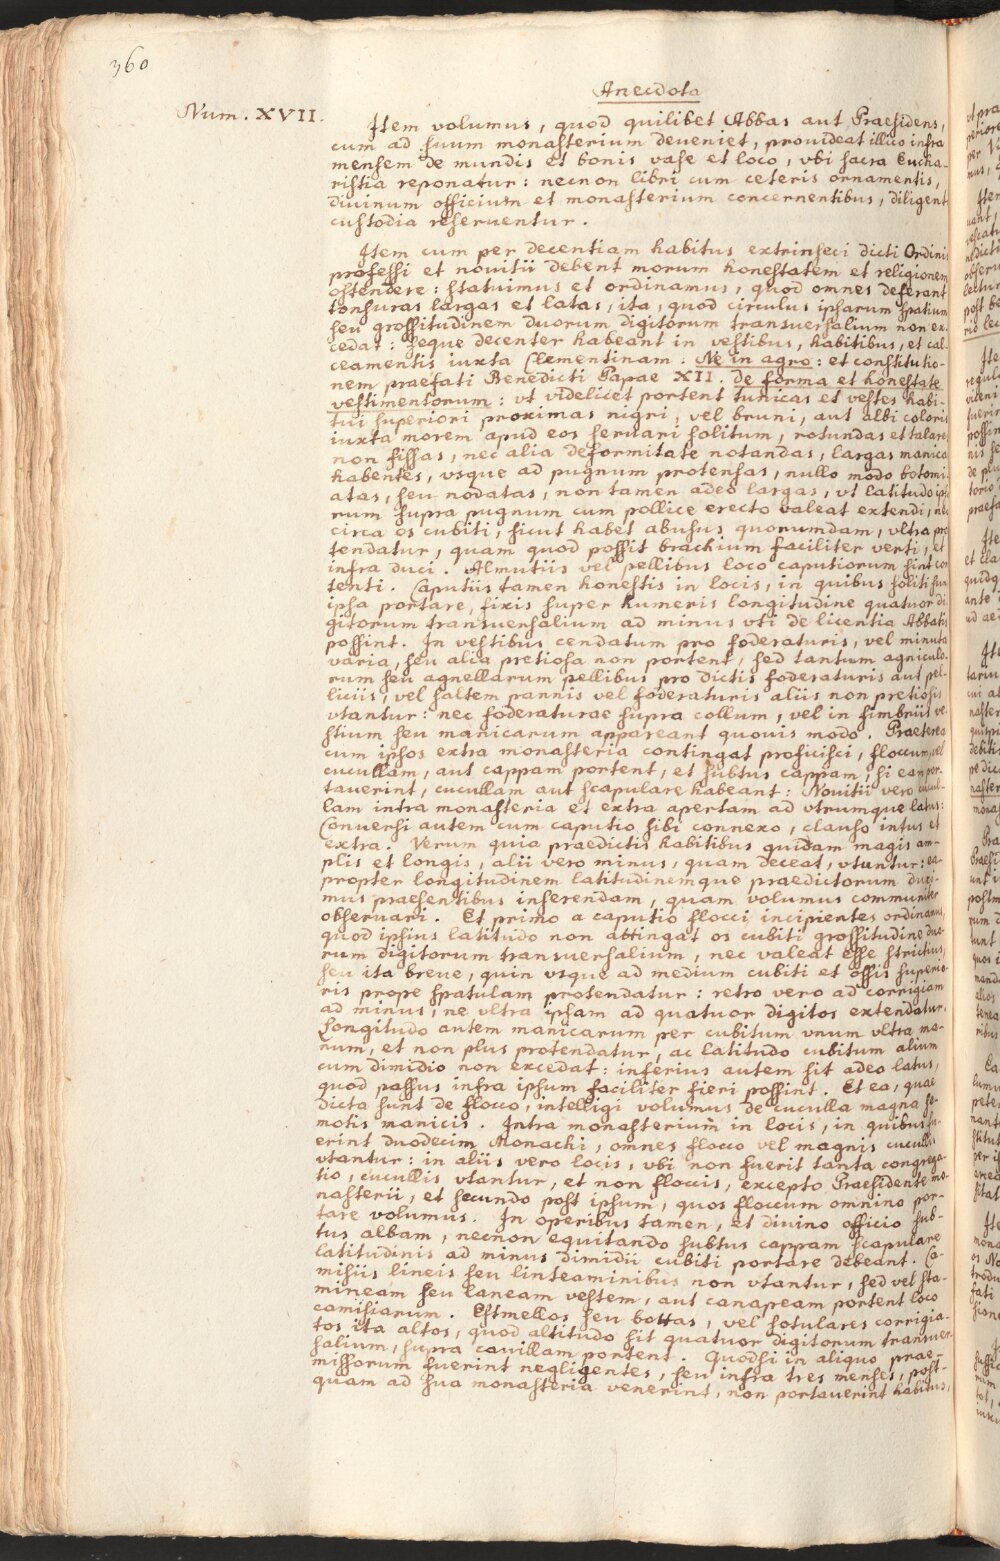 360
Anecdota
Num. XVII.
Item volumus, quod quilibet Abbas aut Praesidens,
cum ad suum monasterium deueniet, prouideat illico infra
mensem de mundis et bonis vase et loco, vbi sacra Eucha-
ristia reponatur: necnon libri cum ceteris ornamentis,
diuinum officium et monasterium concernentibus, diligent
custodia reseruentur.
Item cum per decentiam habitus extrinseci dicti Ordini
professi et nouitii debent morum honestatem et religionem
ostendere: statuimus et ordinamus, quod omnes deferant
tonsuras largas et latas, ita, quod circulus ipsarum spatium
seu grossitudinem duorum digitorum transuersalium non ex-
cedat: seque decenter habeant in vestibus, habitibus, et cal-
ceamentis iuxta Clementinam: Ne in agro: et constitutio-
nem praefati Benedicti Papae XII. de forma et honestate
vestimentorum: vt videlicet portent tunicas et vestes habi-
tui superiori proximas nigri, vel bruni, aut albi coloris
iuxta morem apud eos seruari solitum, rotundas et talares
non fissas, nec alia deformitate notandas, largas manica
habentes, vsque ad pugnum protensas, nullo modo botoni-
atas, seu nodatas, non tamen adeo largas, vt latitudo ips
rum supra pugnum cum pollice erecto valeat extendi, nec
circa os cubiti, sicut habet abusus quorumdam, vltra pro
tendatur, quam quod possit brachium faciliter verti, et
infra duci. Almutiis vel pellibus loco caputiorum sint con
tenti. Caputiis tamen honestis in locis, in quibus soliti sun
ipsa portare, fixis super humeris longitudine quatuor di
gitorum transuersalium ad minus vti de licentia Abbatis
possint. In vestibus cendatum pro foderaturis, vel minuta
varia, seu alia pretiosa non portent, sed tantum agniculo-
rum seu agnellarum pellibus pro dictis foderaturis aut pel-
liciis, vel saltem pannis vel foderaturis aliis non pretiosis
vtantur: nec foderaturae supra collum, vel in fimbriis ve-
stium seu manicarum appareant quouis modo. Praeterea
cum ipsos extra monasteria contingat proficisci, floccum, vel
cucullam, aut cappam portent, et subtus cappam, si eam por-
tauerint, cucullam aut scapulare habeant: Nouitii vero cucul-
lam intra monasteria et extra apertam ad vtrumque latus:
Conuersi autem cum caputio sibi connexo, clauso intus et
extra. Verum quia praedictis habitibus quidam magis am-
plis et longis, alii vero minus, quam deceat, vtuntur: ea-
propter longitudinem latitudinemque praedictorum duxi-
mus praesentibus inserendam, quam volumus communiter
obseruari. Et primo a caputio flocci incipientes ordinamus,
quod ipsius latitudo non attingat os cubiti grossitudine duo-
rum digitorum transuersalium, nec valeat esse strictius,
seu ita breue, quin vsque ad medium cubiti et ossis superio-
ris prope spatulam protendatur: retro vero ad corrigiam
ad minus, ne vltra ipsam ad quatuor digitos extendatur.
Longitudo autem manicarum per cubitum vnum vltra ma-
num, et non plus protendatur, ac latitudo cubitum alium
cum dimidio non excedat: inferius autem sit adeo latus,
quod passus infra ipsum faciliter fieri possint. Et ea, quae
dicta sunt de flocco, intelligi volumus de cuculla magna se-
motis manicis. Intra monasterium in locis, in quibus fu-
erint duodecim Monachi, omnes flocco vel magnis cucullis
vtantur: in aliis vero locis, vbi non fuerit tanta congrega-
tio, cucullis vtantur, et non floccis, excepto Praesidente mo-
nasterii, et secundo post ipsum, quos floccum omnino por-
tare volumus. In operibus tamen, et diuino officio sub-
tus albam, necnon equitando subtus cappam scapulare
latitudinis ad minus dimidii cubiti portare debeant. Ca-
misiis lineis seu linteaminibus non vtantur, sed vel sta-
mineam seu laneam vestem, aut canapeam portent loco
camisiarum. Estmellos, seu bottas, vel sotulares corrigia-
tos ita altos, quod altitudo sit quatuor digitorum transuer-
salium, supra cauillam portent. Quodsi in aliquo prae-
missorum fuerint negligentes, seu infra tres menses, post-
quam ad sua monasteria venerint, non portauerint habitus,